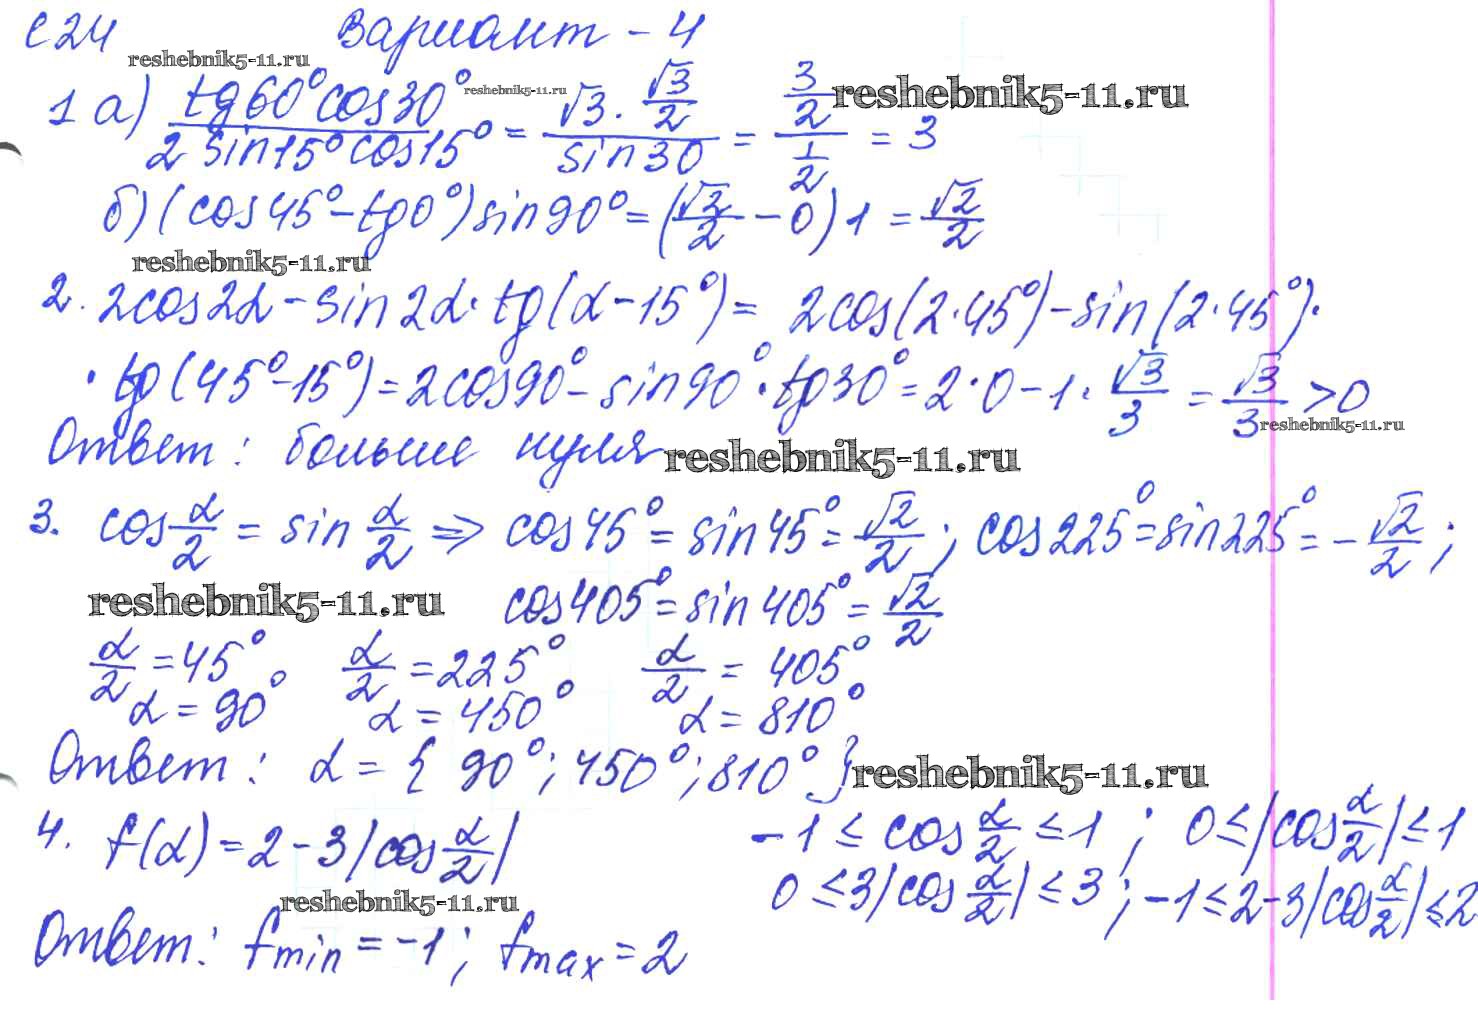 С24 Вариант - 4
reshebnik5-11.ru
1 а) tg60°cos30° / 2 sin15°cos15° = √3 · √3/2 / sin30 = 3/2 / 1/2 = 3
reshebnik5-11.ru
reshebnik5-11.ru
б) (cos45° - tg0°) sin90° = (√2/2 - 0) 1 = √2/2
reshebnik5-11.ru
2. 2cos2α - sin2α · tg(α - 15°) = 2cos(2·45°) - sin(2·45°) ·
· tg(45° - 15°) = 2cos90° - sin90° · tg30° = 2·0 - 1 · √3/3 = √3/3 > 0
reshebnik5-11.ru
Ответ: больше нуля
reshebnik5-11.ru
3. cos α/2 = sin α/2 ⇒ cos45° = sin45° = √2/2 ; cos225° = sin225° = - √2/2 ;
reshebnik5-11.ru
cos405° = sin405° = √2/2
α/2 = 45° α/2 = 225° α/2 = 405°
α = 90° α = 450° α = 810°
Ответ: α = { 90°; 450°; 810° }
reshebnik5-11.ru
4. f(α) = 2 - 3|cos α/2| -1 ≤ cos α/2 ≤ 1 ; 0 ≤ |cos α/2| ≤ 1
0 ≤ 3|cos α/2| ≤ 3 ; -1 ≤ 2 - 3|cos α/2| ≤ 2
reshebnik5-11.ru
Ответ: fmin = -1; fmax = 2